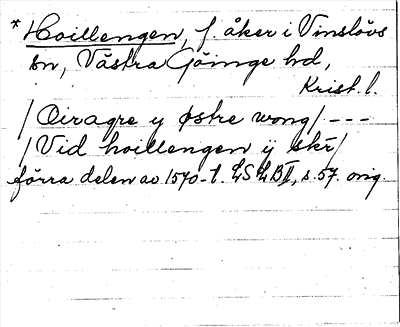 * Hoillengen, f. åker i Vinslövs
sn, Västra Göinge hd,
Krist. l.
/ Øragre y østre wong / ---
/ Vid hoillengen ÿ skr /
förra delen av 1570-t. LSLB II, s. 57. orig.